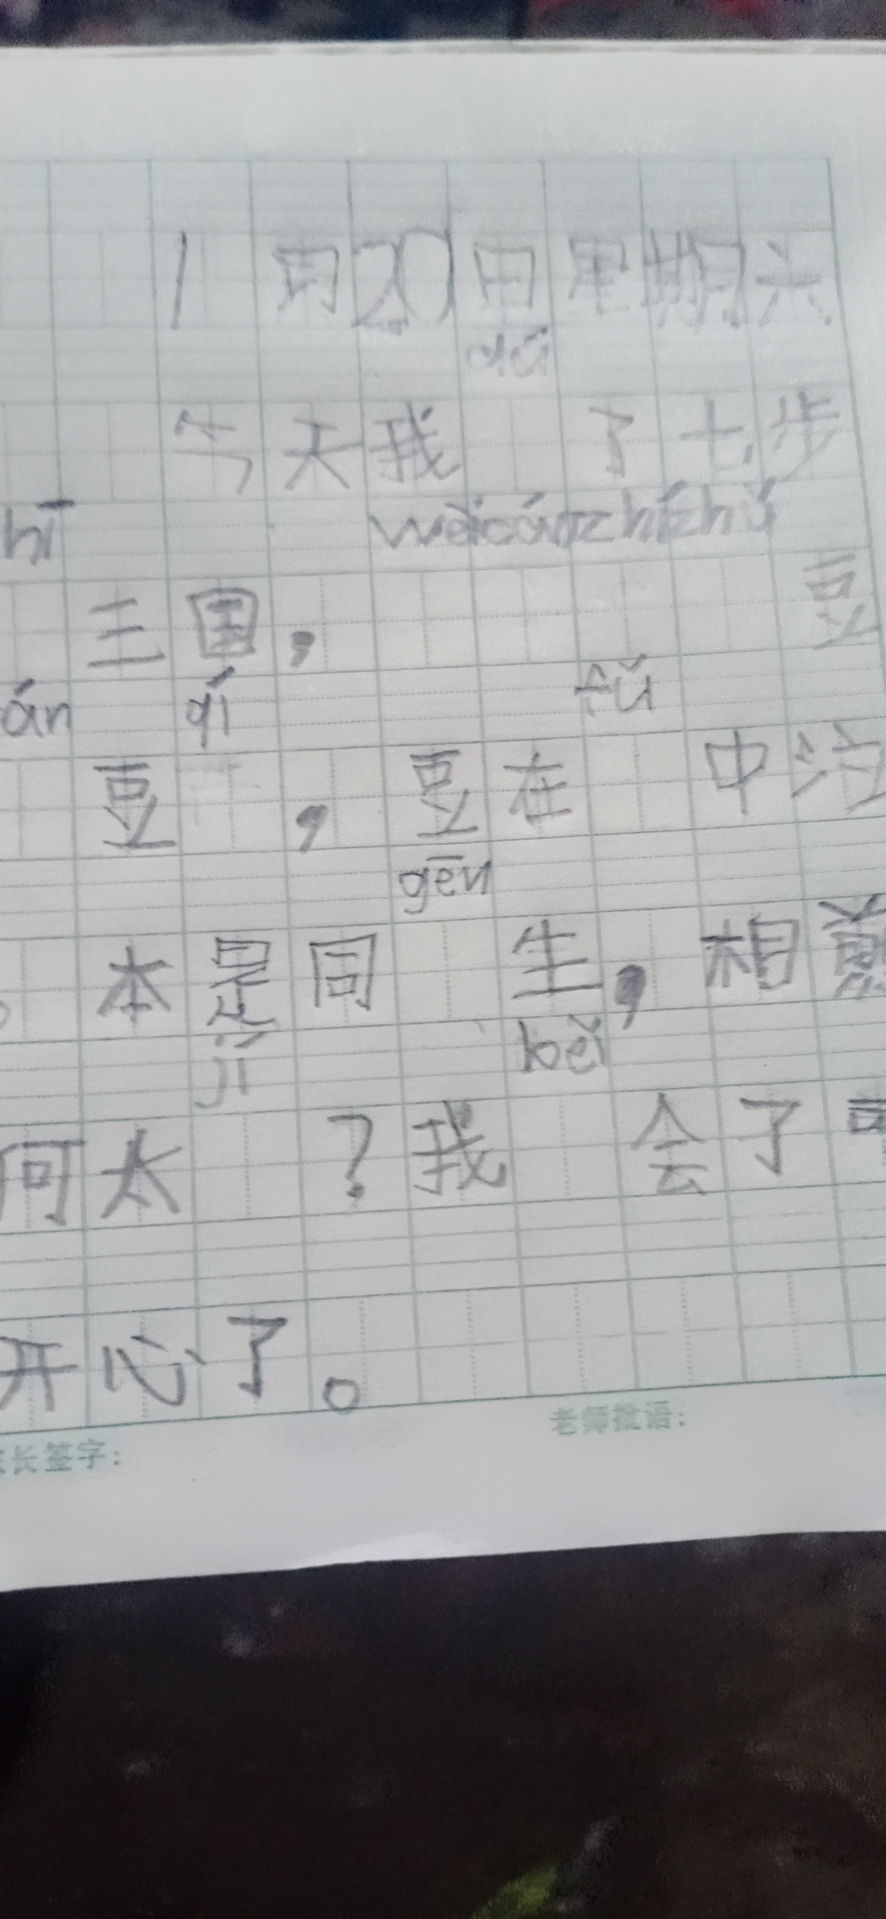 1月20日星期六
今天我 了七步
hī wèicáozhízhǔ
三国， 豆
án qí fǔ
豆 ，豆在 中泣
gēn
。本是同 生，相煎
jí bèi
何太 ？我 会了
开心了。
长签字： 老师批语：